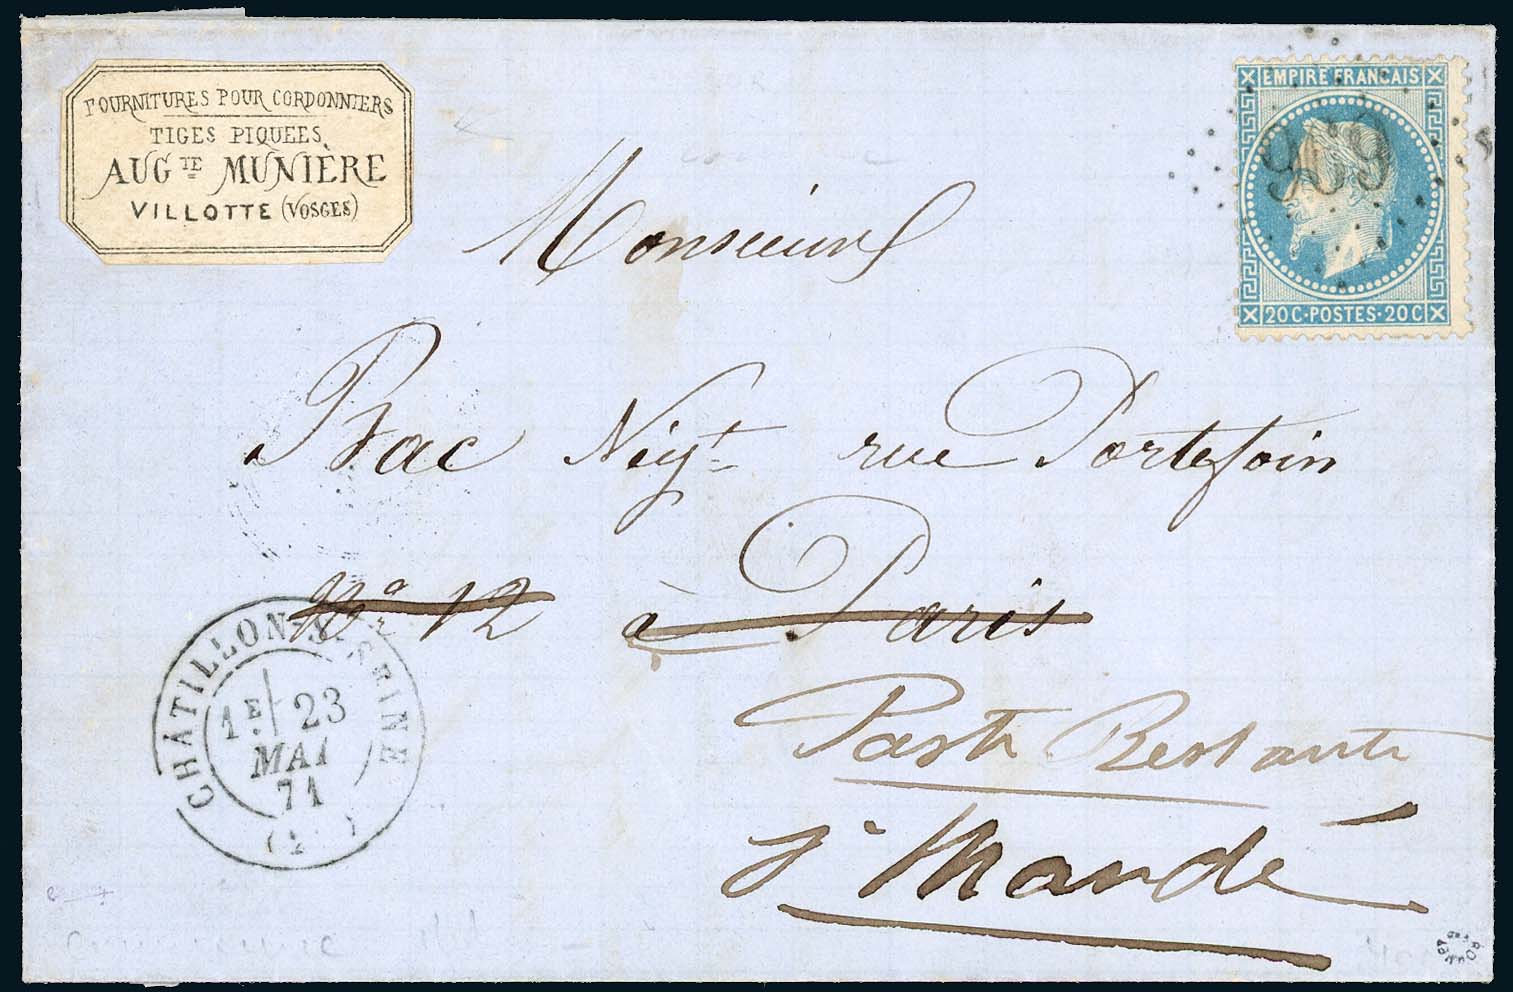 FOURNITURES POUR CORDONNIERS
TIGES PIQUEES
AUGTE MUNIÈRE
VILLOTTE (VOSGES)
EMPIRE FRANÇAIS
20C·POSTES·20C
959
Monsieur
Brac Négt rue Portefoin
No 12 à Paris
Poste Restante
St Mandé
CHÂTILLON-S-SEINE
1E 23
MAI
71